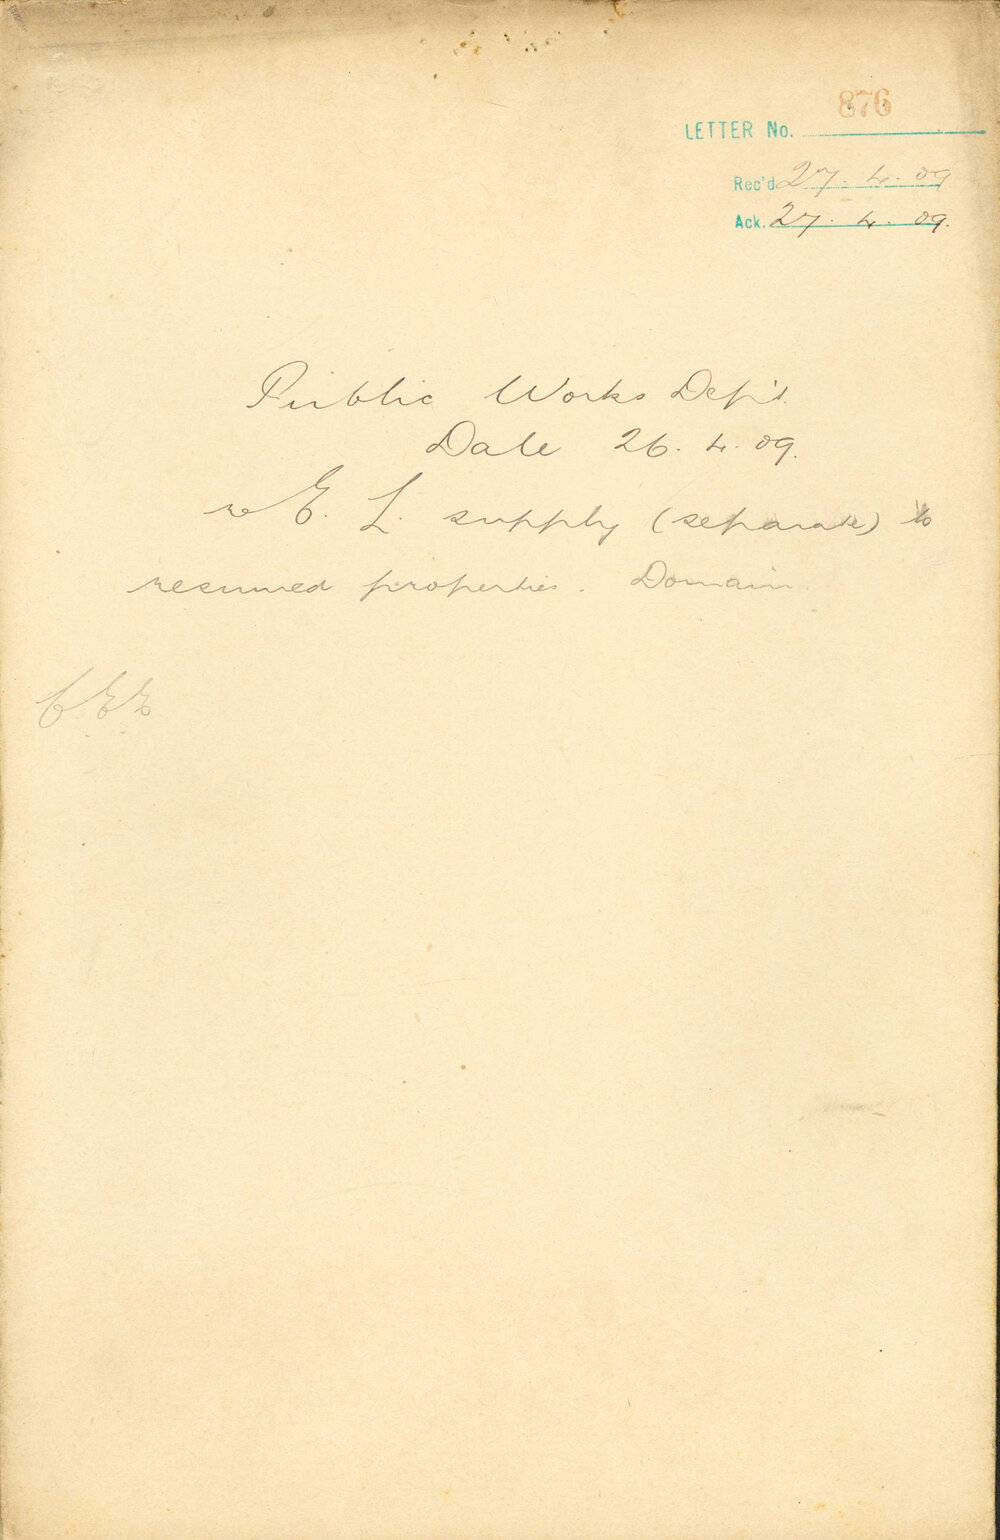 876
LETTER No.
Rec'd 27.4.09
Ack. 27.4.09.
Public Works Dep't.
Date 26.4.09.
re E. L. supply (separate) to
resumed properties. Domain
CEE